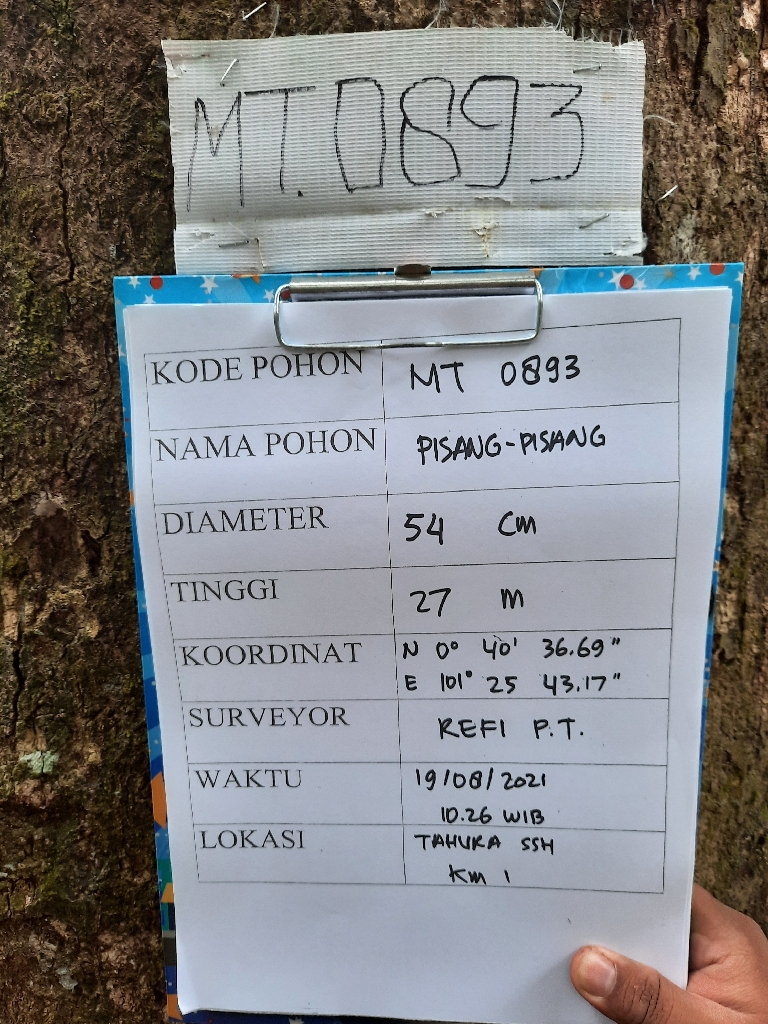 MT.0893
KODE POHON MT 0893
NAMA POHON PISANG-PISANG
DIAMETER 54 Cm
TINGGI 27 m
KOORDINAT N 0° 40' 36.69"
E 101° 25 43.17"
SURVEYOR REFI P.T.
WAKTU 19/08/2021
10.26 WIB
LOKASI TAHURA SSH
Km 1